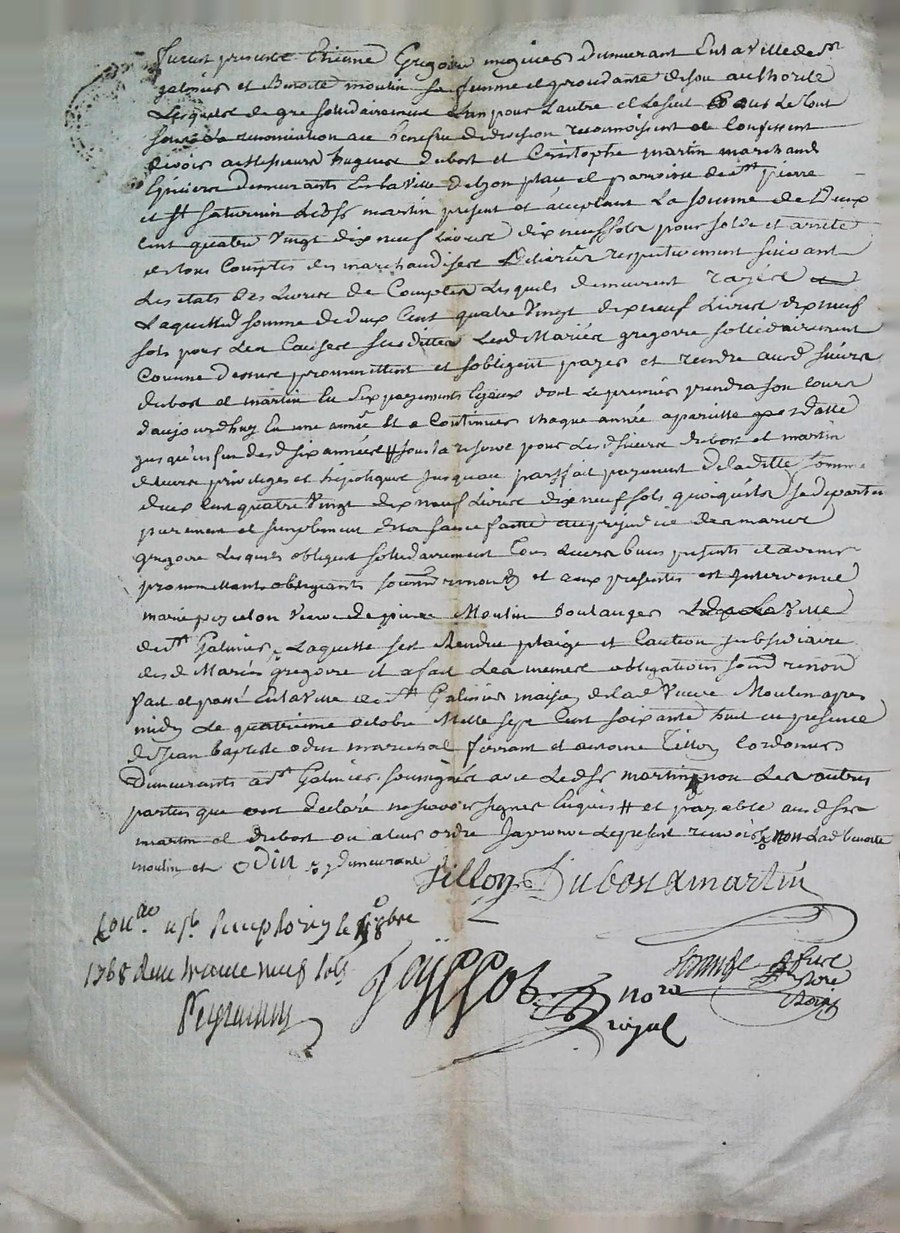 furent presents Etienne Gregoire megissier demeurant En la Ville de St
galmier et Benoite moulin sa femme procedante de son authorité
Lesquels de gre solidairement L'un pour L'autre et Le seul pour Le tout
sous La renonciation au benefice de division reconnoissent et confessent
devoir a Messieurs hugues dubost et Cristophe martin marchands
Epiciers demeurants En la Ville de Lyon place et parroisse de St pierre
et St saturnin Led Sr martin present et acceptant La somme de Deux
Cent quatre Vingt dix neuf Livres dix neuf sols pour solde et arrêté
de tous Comptes des marchandises delivrées respectivement suivant
Les etats des Livres de Comptes Lesquels demeurent rayés
Laquelle somme de deux Cent quatre Vingt dix neuf Livres dix neuf
sols pour Les Causes susdittes Lesd Mariés gregoire sollidairement
Comme dessus promettent et sobligent payer et rendre aux d sieurs
dubost et martin En six payements Egaux dont Le premier prendra son Cours
d'aujourdhuy En une année Et a Continuer chaque année a pareille jour datte
jusqu'en fin des d six années # sous la reserve pour Les d sieurs dubost et martin
de Leurs privileges et hipoteque jusquau parfait payement de la ditte somme
deux Cent quatre Vingt dix neuf Livres dix neuf sols
purement et simplement de la faitte au prejudice des mariés
gregoire Lesquels obligent sollidairement Tous Leurs biens presents et avenir
promettants obligeants soumt renond et aux presentes est Intervenue
marie peyzelon Veuve de pierre Moulin boulanger de La Ville
de St Galmier Laquelle sest Rendue plaige et Caution subsidiaire
desd Mariés gregoire et a fait Les memes obligations soum renon
fait et passé En la Ville de St Galmier maison de lad Veuve Moulin apres
midy Le quatrieme octobre Mille sept Cent soixante huit en presence
de Jean baptiste odin marechal ferrant et antoine Tillon Cordonnier
Demeurants a St Galmier soussignés avec Led Sr martin non Les autres
parties que ont declaré ne sçavoir signer Enquis # et payable aux d Srs
martin et dubost ou a leur ordre Japrouve Le present renvois non Lad benoite
moulin et odin demeurante
Tillon Dubost & martin
Con.lé a St Simphorien le 8bre
1768 Reçu trente neuf sols
Peyronnin
nore
royal